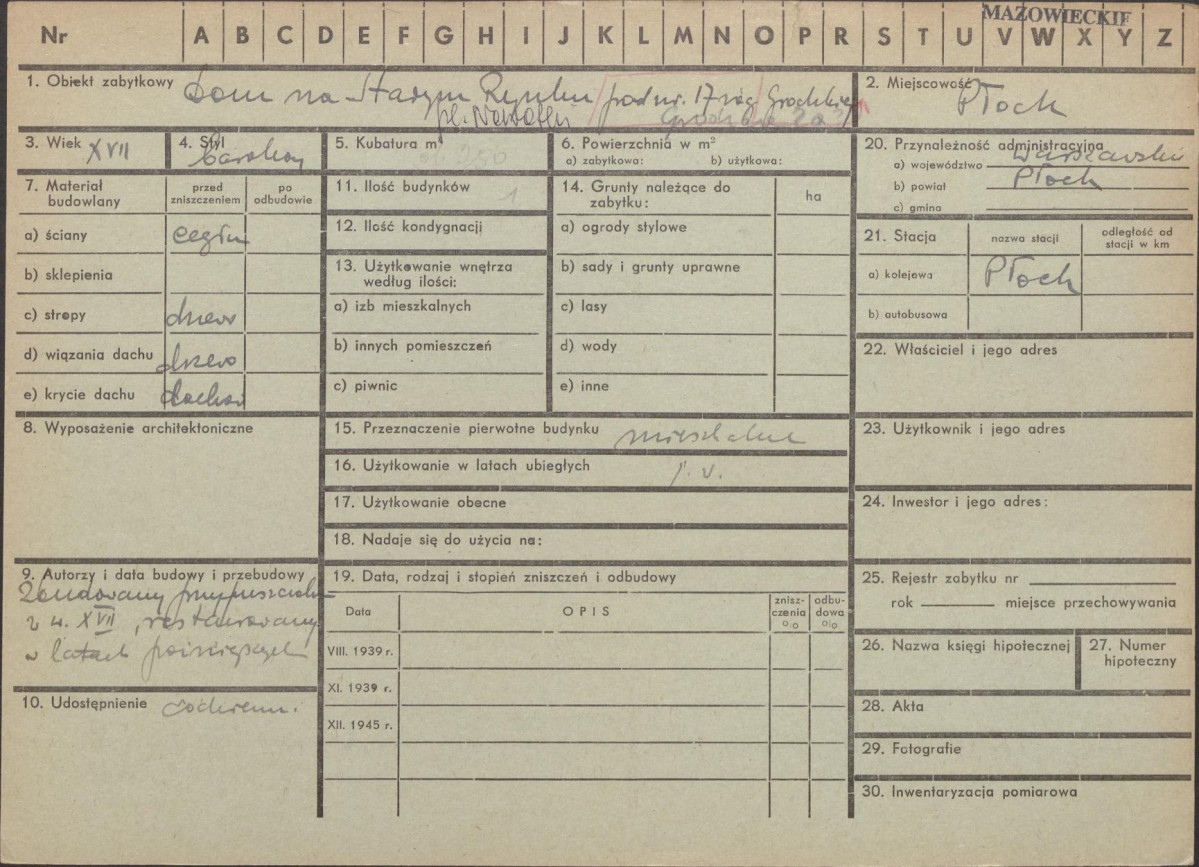 MAZOWIECKIE
Nr A B C D E F G H I J K L M N O P R S T U V W X Y Z
1. Obiekt zabytkowy Dom na Starym Rynku pod nr. 17 róg Grodzkiej
pl. Narutow. Grodzka 2a
2. Miejscowość Płock
3. Wiek XVII
4. Styl barokowy
5. Kubatura m³ ok 250
6. Powierzchnia w m²
a) zabytkowa: b) użytkowa:
20. Przynależność administracyjna
a) województwo warszawskie
b) powiat Płock
c) gmina
7. Materiał budowlany
przed zniszczeniem
po odbudowie
a) ściany cegła
b) sklepienia
c) stropy drzewo
d) wiązania dachu drzewo
e) krycie dachu
11. Ilość budynków 1
12. Ilość kondygnacji
13. Użytkowanie wnętrza
według ilości:
a) izb mieszkalnych
b) innych pomieszczeń
c) piwnic
14. Grunty należące do
zabytku:
ha
a) ogrody stylowe
b) sady i grunty uprawne
c) lasy
d) wody
e) inne
21. Stacja
nazwa stacji
odległość od
stacji w km
a) kolejowa Płock
b) autobusowa
22. Właściciel i jego adres
8. Wyposażenie architektoniczne
15. Przeznaczenie pierwotne budynku mieszkalne
16. Użytkowanie w latach ubiegłych j. w.
17. Użytkowanie obecne
18. Nadaje się do użycia na:
23. Użytkownik i jego adres
24. Inwestor i jego adres:
9. Autorzy i data budowy i przebudowy
Zbudowany przypuszczalnie
z w. XVII, restaurowany
w latach późniejszych
10. Udostępnienie codzienni.
19. Data, rodzaj i stopień zniszczeń i odbudowy
Data
OPIS
znisz-
czenia
o/o
odbu-
dowa
o/o
VIII. 1939 r.
XI. 1939 r.
XII. 1945 r.
25. Rejestr zabytku nr
rok miejsce przechowywania
26. Nazwa księgi hipotecznej
27. Numer
hipoteczny
28. Akta
29. Fotografie
30. Inwentaryzacja pomiarowa